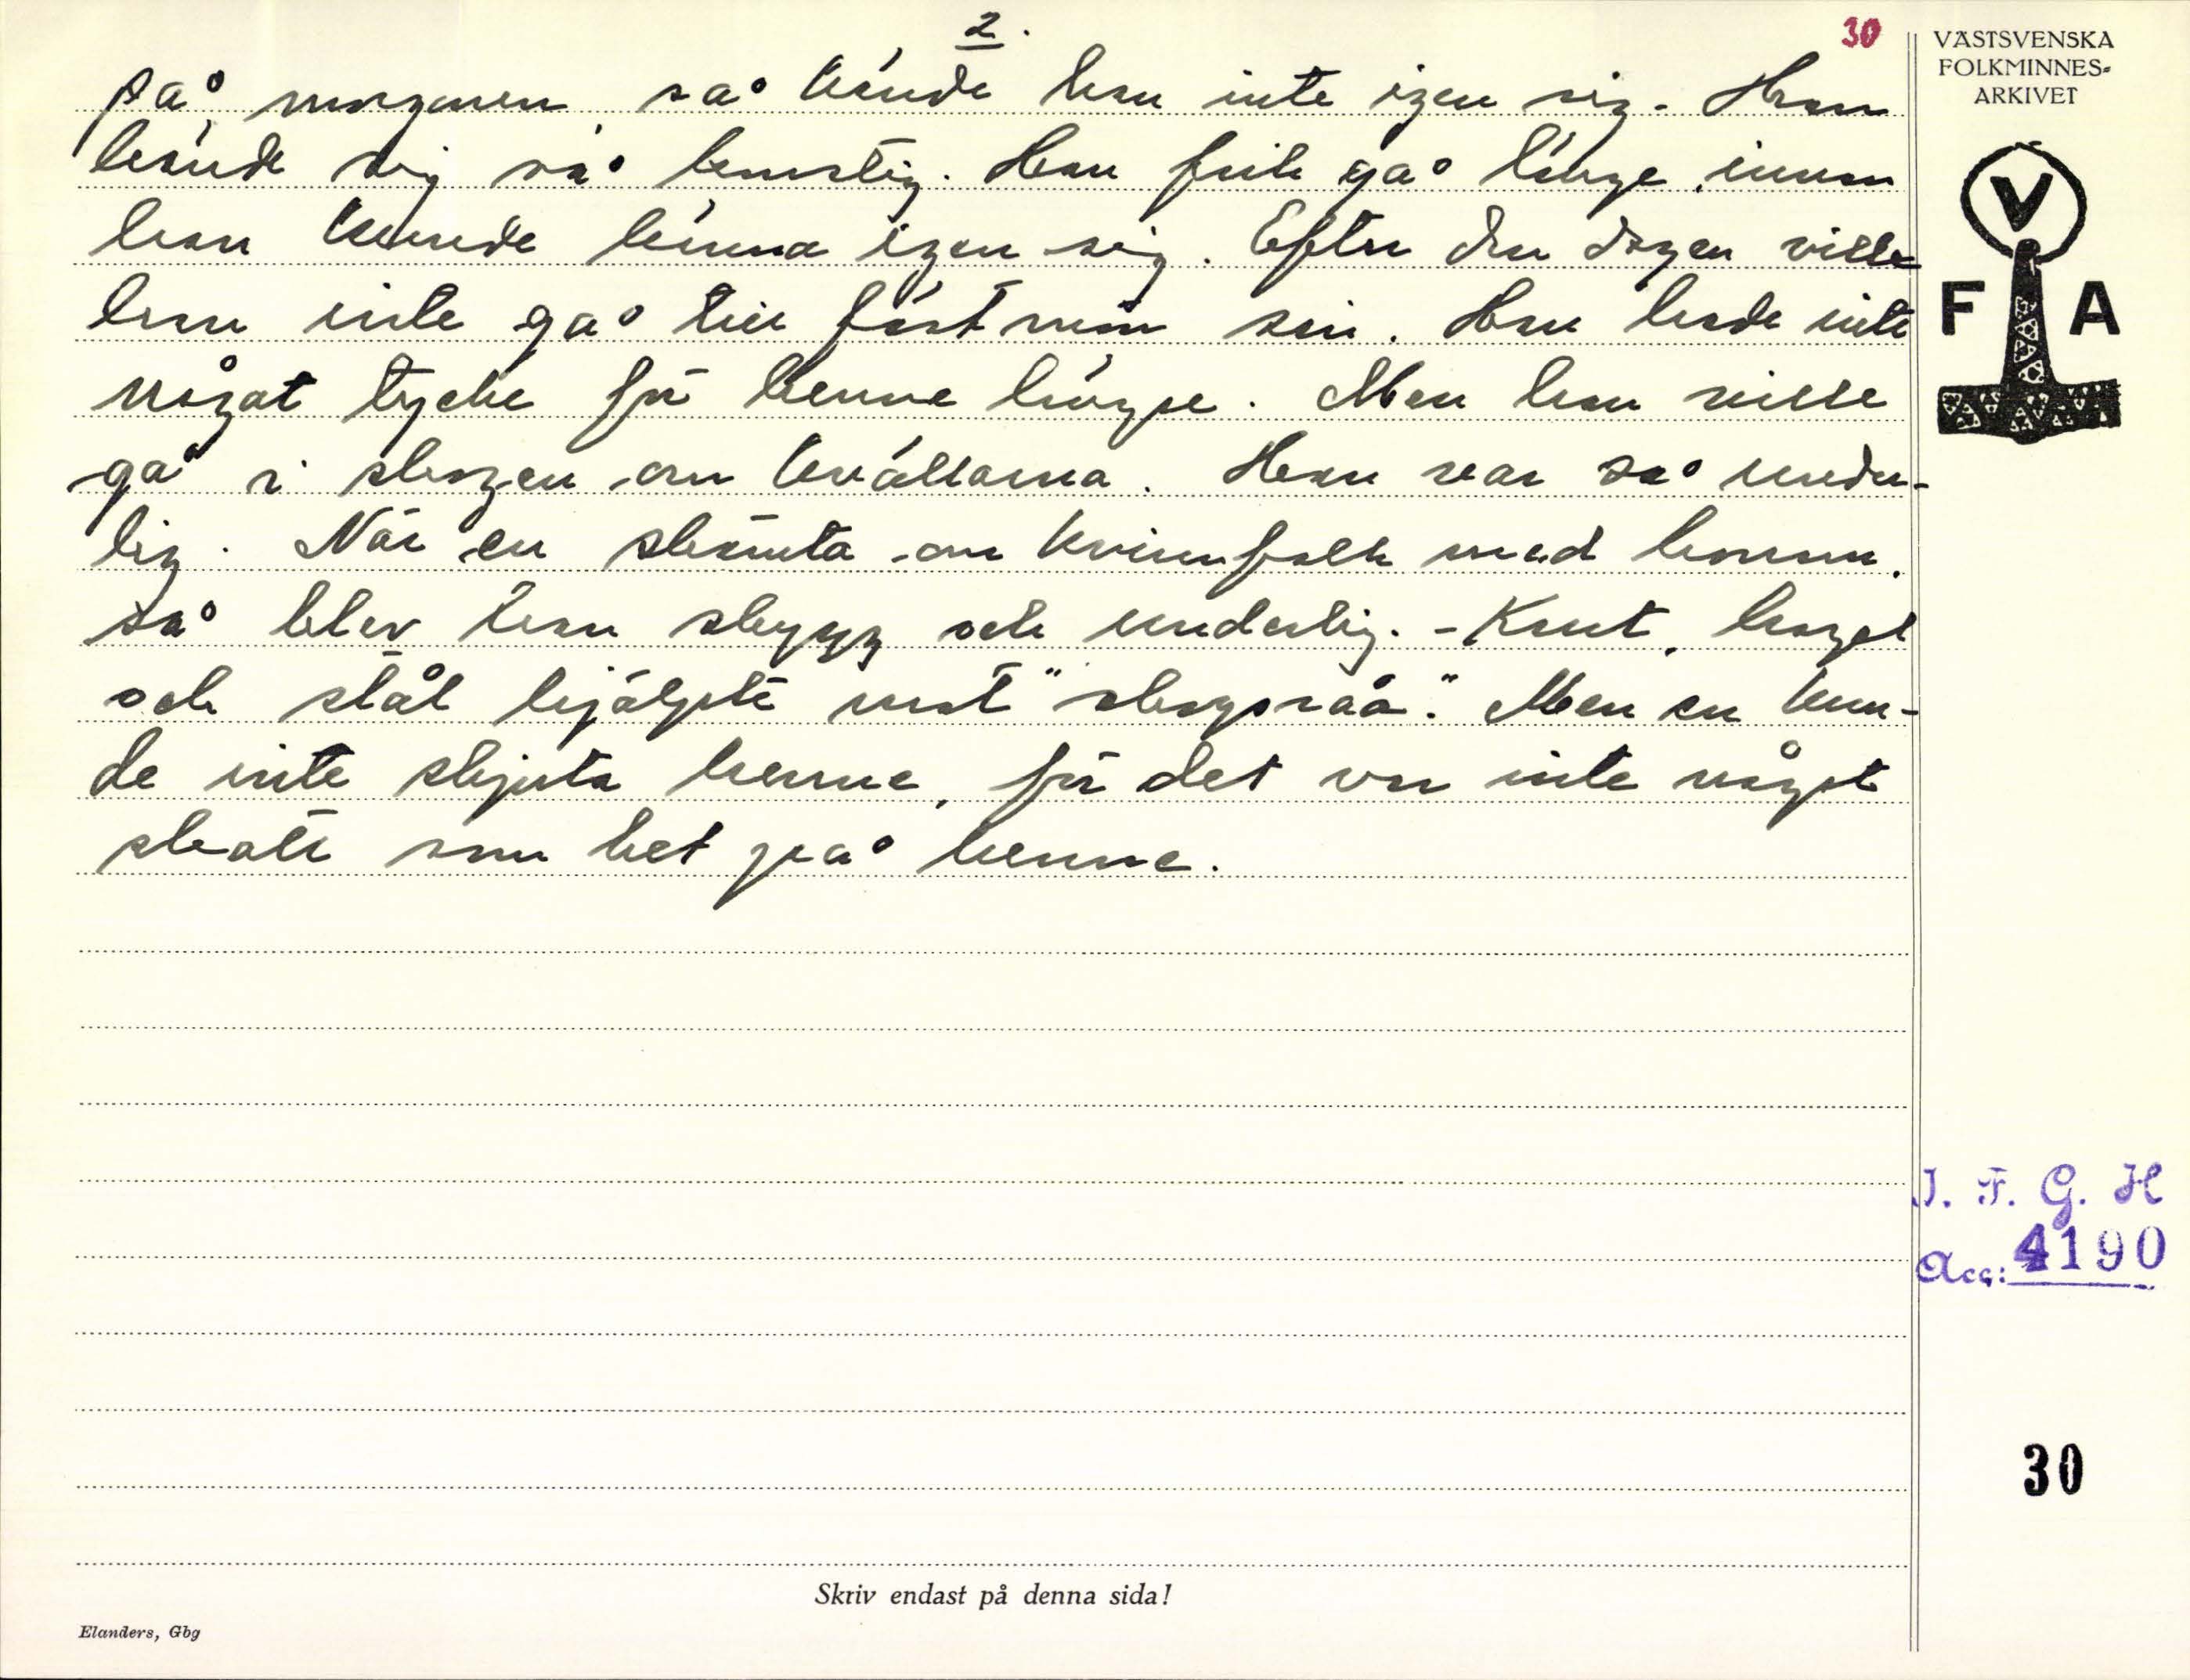 2.
30
på morgonen, så kände han inte igen sig. Han
kände sig så konstig. Han fick gå länge, innan
han kunde känna igen sig. Efter den dagen ville
han inte gå till fästmön sin. Han hade inte
någat tycke för henne längre. Men han ville
gå i skogen om kvällarna. Han var så under-
lig. När en skämta om kvinnfolk med honom,
så blev han skygg och underlig. - Krut, hagel
och stål hjälpte mot "skogsråa". Men en kun-
de inte skjuta henne, för det var inte något
skott som bet på henne.
VÄSTSVENSKA
FOLKMINNES-
ARKIVET
V
F A
I. F. G. H
Acc: 4190
30
Skriv endast på denna sida!
Elanders, Gbg